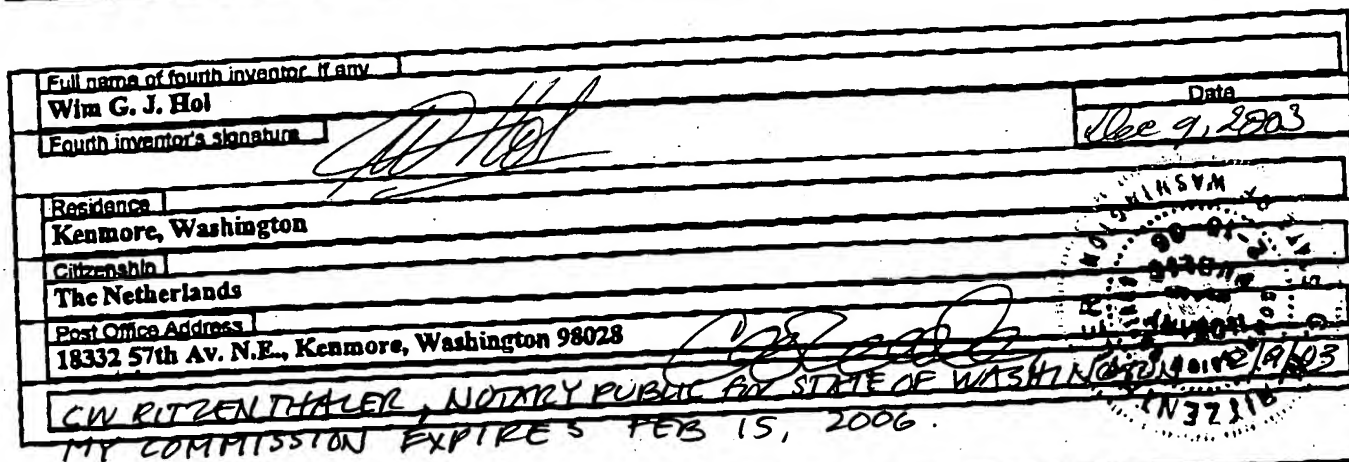 Full name of fourth inventor, if any
Wim G. J. Hol
Fourth inventor's signature
Date
Dec 9, 2003
Residence
Kenmore, Washington
Citizenship
The Netherlands
Post Office Address
18332 57th Av. N.E., Kenmore, Washington 98028
CW RITZENTHALER, NOTARY PUBLIC FOR STATE OF WASHINGTON 12/9/03
MY COMMISSION EXPIRES FEB 15, 2006.